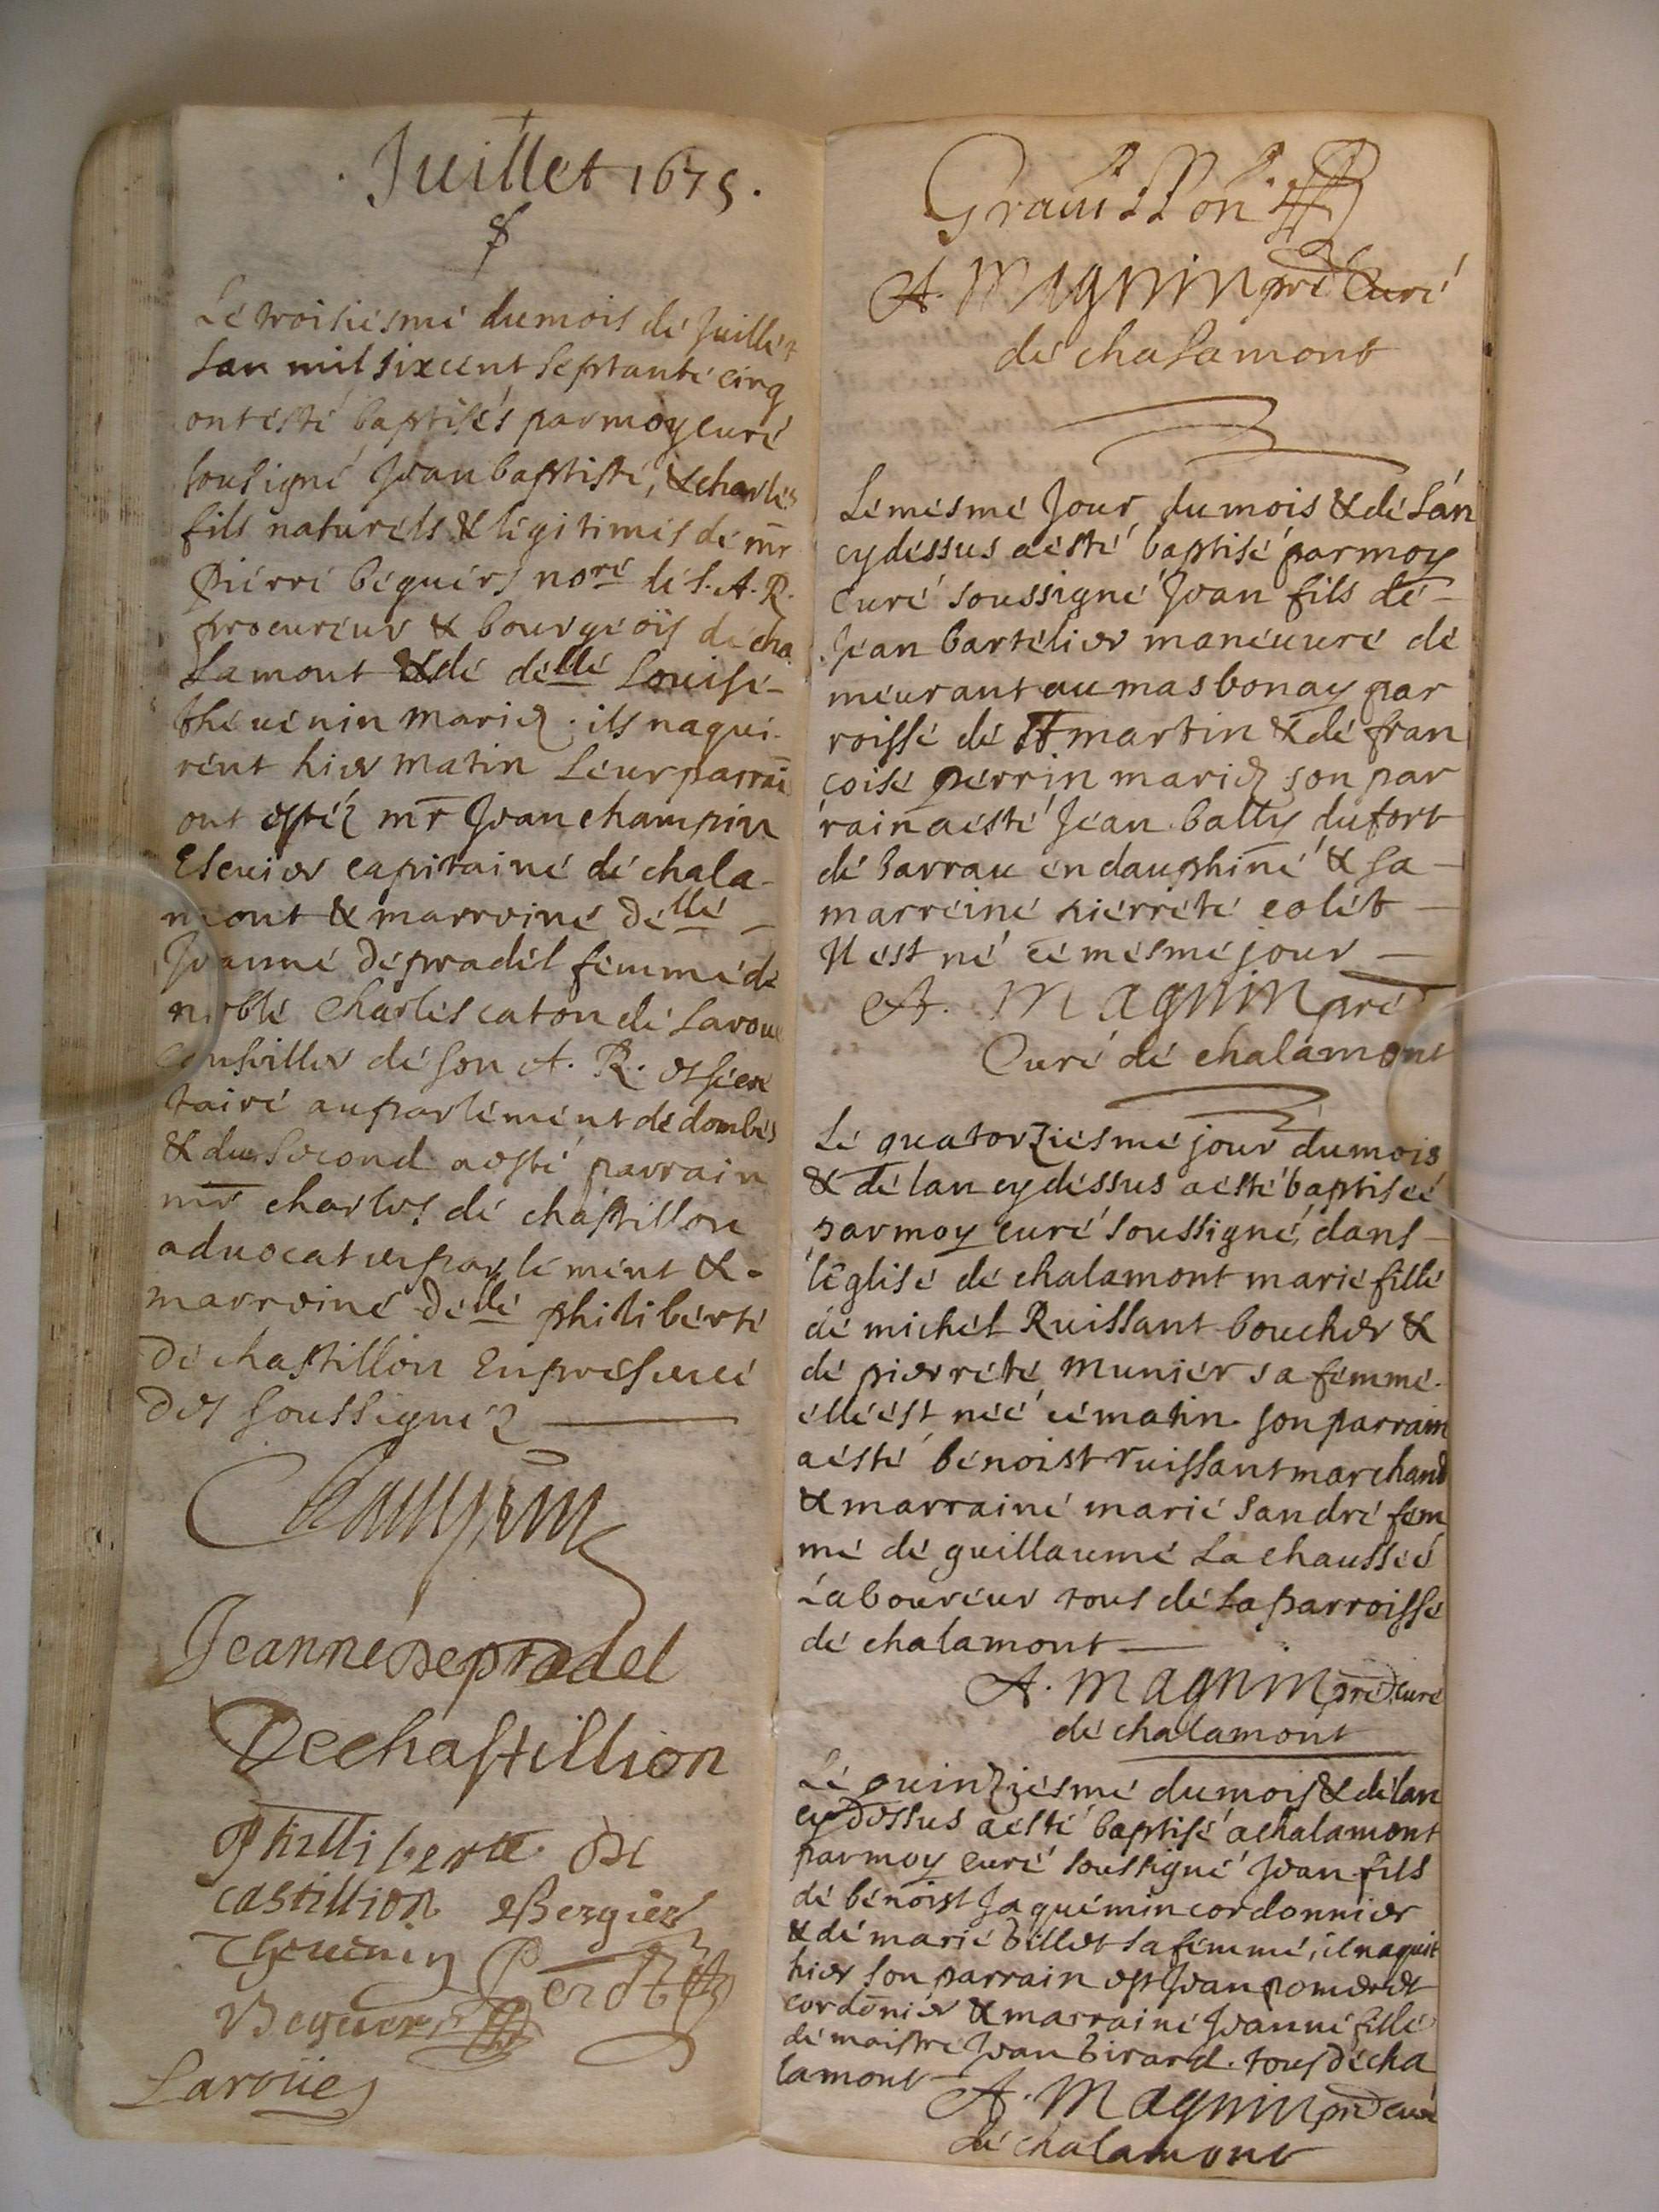 Juillet 1675.
Le troisiesme du mois de Juillet
Lan mil six cent septante cinq
ont esté baptisés par moy curé
sousigné Jean baptiste, & charles
fils naturels & legitimes de mr
Pierre béguers nore de S. A. R.
procureur & bourgeois de cha
lamont & de délle Louise
thevenin mariez. ils naqui
rent hier matin Leur parrain
ont estéz mr Jean champin
Escuier capitaine de chala
mont & marreine délle
Jeanne dépradél femme de
noble Charles caton de Laroue
conseiller de son A. R. et secre
taire au parlement de dombes
& du second a esté parrain
mr charles de chastillon
advocat en parlement &
marreine délle philiberte
de chastillon En presence
des soussignéz
Champin
Jeanne Depradel
Dechastillion
Phillibertte De
castillion Bergier
Thevenin Perost
Beguers
Laroüe
Gravillon
A. Magnin pre Curé
de chalamont
Le mesme Jour du mois & de Lan
cydessus a esté baptisé par moy
curé soussigné Jean fils de
Jean bartelier maneuvre de
meurant au mas bonay par
roisse de St martin & de fran
çoise perrin mariez son par
rain a esté Jean batty du fort
de barrau en dauphiné & sa
marreine pierrete colet
Il est né ce mesme jour
A. Magnin pre
Curé de chalamont
Le quatorziesme jour du mois
& de lan cydessus a esté baptiseé
par moy curé soussigné, dans
l'eglise de chalamont marie fille
de michel Ruissant boucher &
de pierrete Munier sa femme.
elle est neé ce matin son parrain
a esté benoist ruissant marchand
& marraine marie sandre fem
me de guillaume La chausseé
Laboureur tous de La parroisse
de chalamont
A. Magnin pre curé
de chalamont
Le quinziesme du mois & de lan
cydessus a esté baptisé a chalamont
par moy curé soussigné Jean fils
de benoist Jaquemin cordonnier
& de marie billet sa femme, il naquit
hier son parrain est Jean pomeret
cordonier & marraine Jeanne fille
de maistre Jean birard. tous de cha
lamont
A. Magnin pre curé
de chalamont